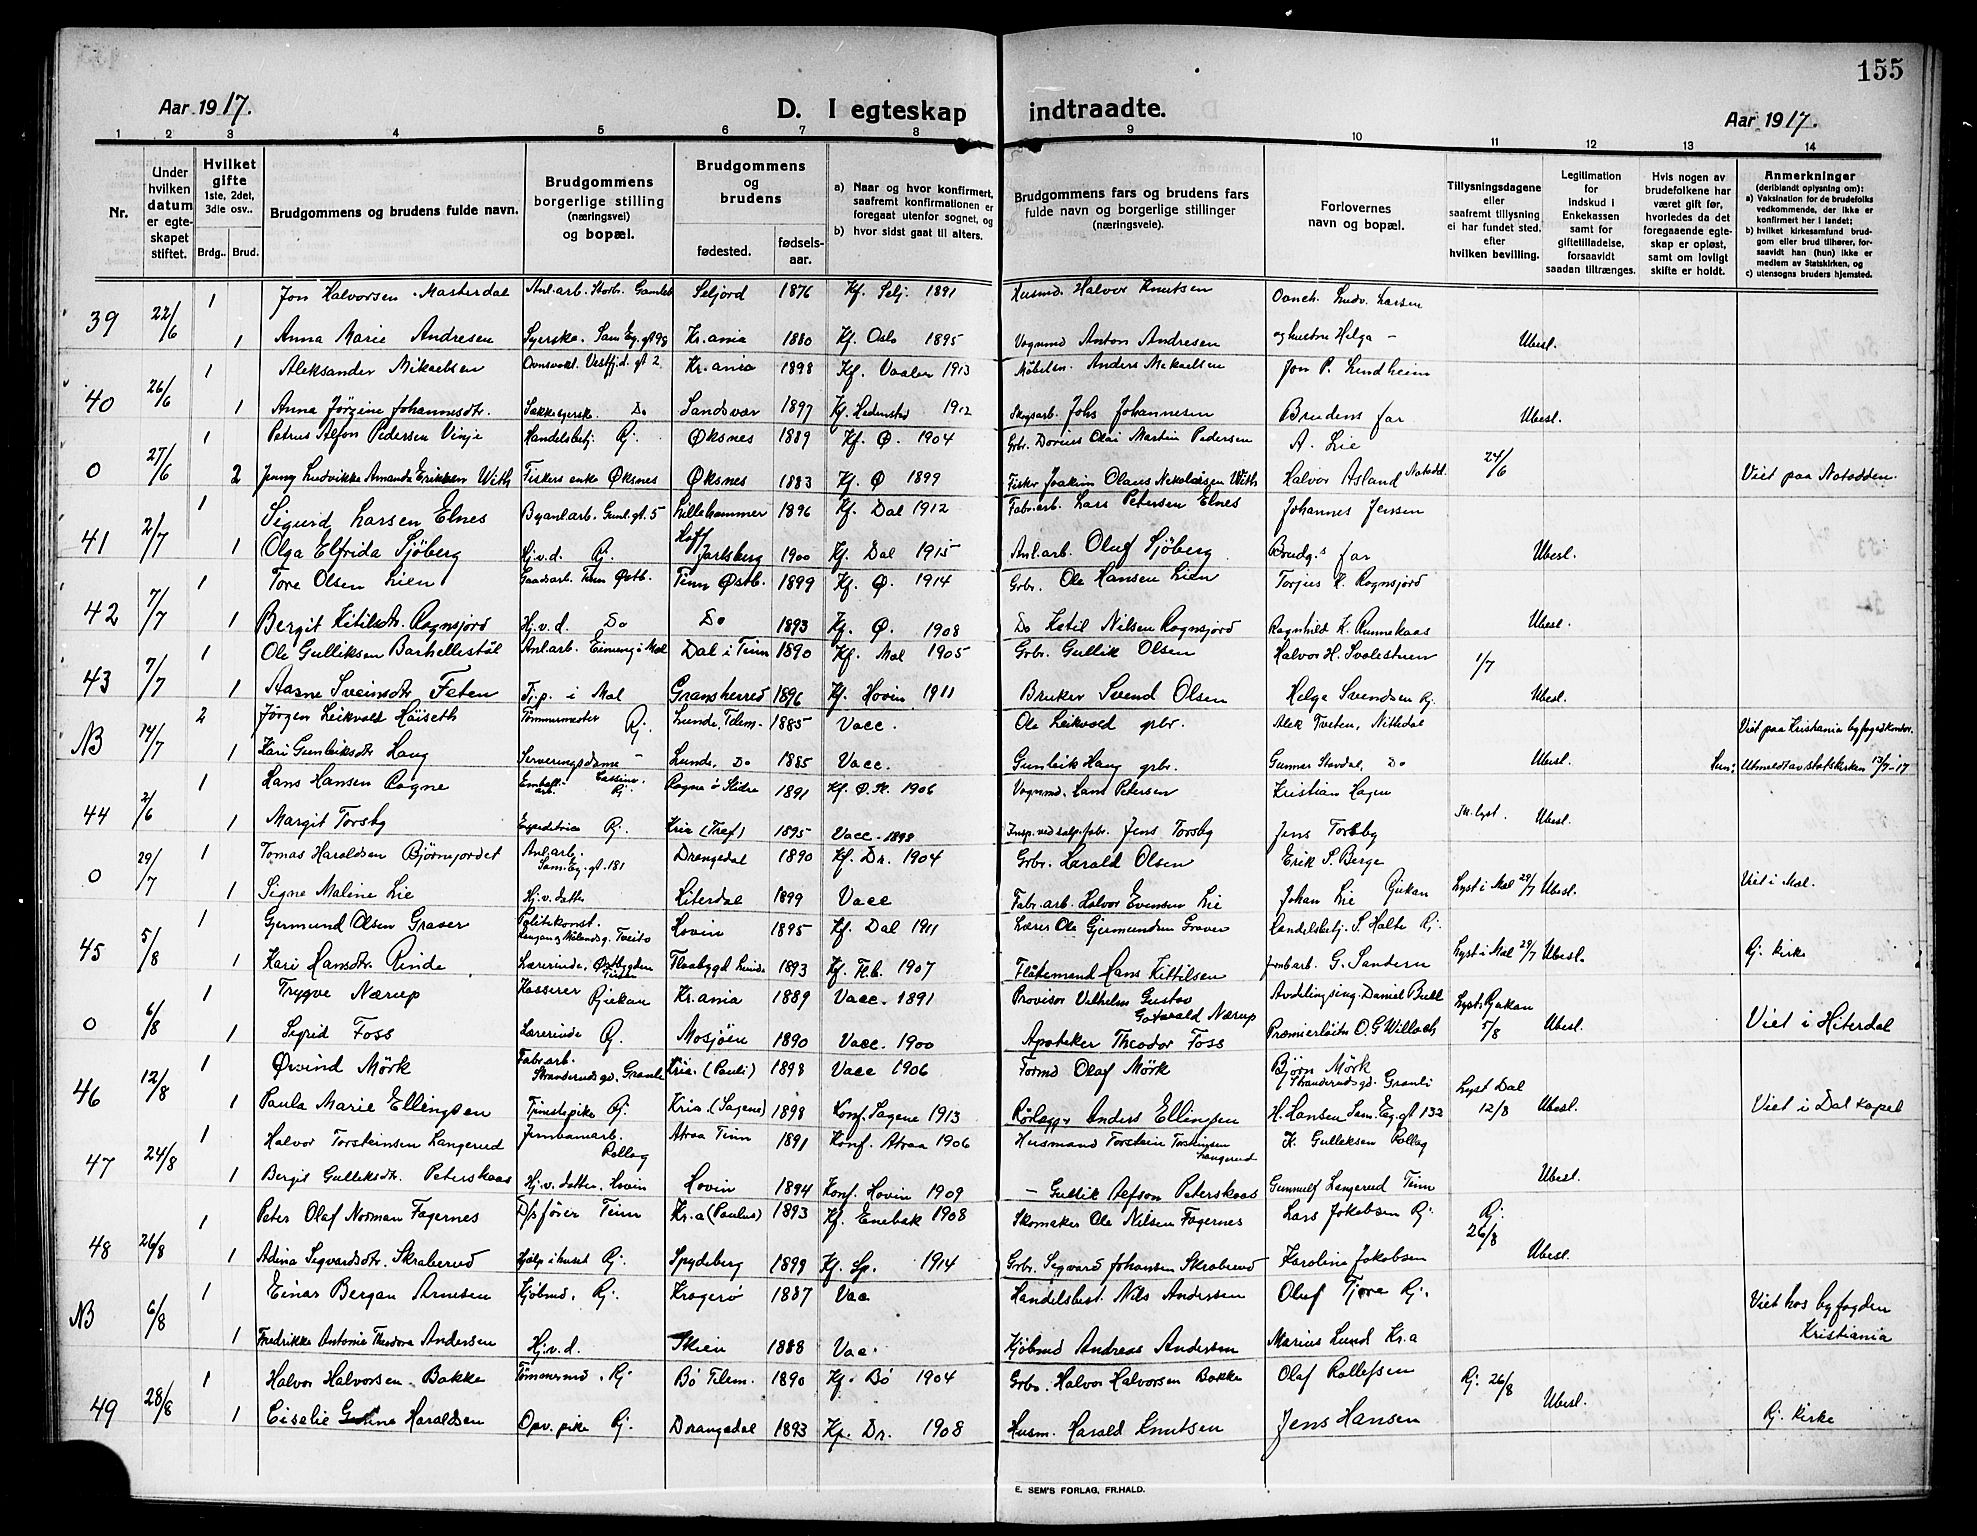 155
Aar 1917. D. I egteskap indtraadte. Aar 1917.
1 2 3 4 5 6 7 8 9 10 11 12 13 14
Nr.
Under hvilken datum er egteskapet stiftet.
Hvilket gifte 1ste, 2det, 3die osv..
Brdg.. Brud.
Brudgommens og brudens fulde navn.
Brudgommens borgerlige stilling (næringsvei) og bopæl.
Brudgommens og brudens
fødested. fødsels-aar.
a) Naar og hvor konfirmert, saafremt konfirmationen er foregaat utenfor sognet, og
b) hvor sidst gaat til alters.
Brudgommens fars og brudens fars fulde navn og borgerlige stillinger (næringsveie).
Forlovernes navn og bopæl.
Tillysningsdagene eller saafremt tillysning ei har fundet sted, efter hvilken bevilling.
Legitimation for indskud i Enkekassen samt for giftetilladelse, forsaavidt saadan tiltrænges.
Hvis nogen av brudefolkene har været gift før, hvorledes da det foregaaende egteskap er opløst, samt om lovligt skifte er holdt.
Anmerkninger (deriblandt oplysning om):
a) Vaksination for de brudefolks vedkommende, der ikke er konfirmert her i landet;
b) hvilket kirkesamfund brudgom eller brud tilhører, forsaavidt han (hun) ikke er medlem av Statskirken, og
c) utensogns bruders hjemsted.
39 22/6 1 Jon Halvorsen Masterdal Anl.arb. Storb. Gamleb Seljord 1876 Kf. Selj. 1891 Husmd. Halvor Knutsen Ludv. Larsen
1 Anna Marie Andresen Syerske. Sam Eg. gt 98 Kr.ania 1880 Kf. Oslo 1895 Vognmd Anton Andresen og hustru Helga - Ubesl.
40 26/6 1 Aleksander Mikaelsen Ovnsvakt. Vestfj.d. gt 2 Kr.ania 1898 Kf. Vaaler 1913 Møbelsn. Anders Mikaelsen Jon P. Lundheim
1 Anna Jørgine Johannesdtr. Sækkesyerske Do Sandsvær 1897 Kf. Hedenstad 1912 Skogsarb. Johs Johannesen Brudens far Ubesl.
0 27/6 1 Petrus Alfon Pedersen Vinje Handelsbetj. Rj. Øksnes 1889 Kf. Ø. 1904 Grbr. Dorius Olai Martin Pedersen A. Lie
2 Jenny Ludvikke Amanda Eriksen With Fiskers enke Øksnes Øksnes 1883 Kf. Ø 1899 Fisker Joakim Olaus Nikolaisen With Halvor Asland Notodd. 24/6 Viet paa Notodden.
41 2/7 1 Sigurd Larsen Elnes Byanl.arb. Gunl.gt. 5 Lillehammer 1896 Kf. Dal 1912 Fabr.arb. Lars Petersen Elnes Johannes Jenssen
1 Olga Elfrida Sjöberg Hj.v.d. Rj. Hoff Jarlsberg 1900 Kf. Dal 1915 Anl.arb. Oluf Sjöberg Brudg.s far Ubesl.
42 7/7 1 Tore Olsen Lien Gaardsarb. Tinn Østb. Tinn Østb. 1899 Kf. Ø. 1914 Grbr. Ole Hansen Lien Torjus K. Rognsjord
1 Bergit Kitilsdtr. Rognsjord Hj.v.d. Do Do 1893 Kf. Ø. 1908 Do Ketil Nilsen Rognsjord Ragnhild K. Runnekaas Ubesl.
43 7/7 1 Ole Gulliksen Barhellestöl Anl.arb. Einung i Mæl Dal i Tinn 1890 Kf. Mæl 1905 Grbr. Gullik Olsen Halvor H. Svalestuen 1/7
1 Aasne Sveinsdtr. Faten Tj.p. i Mæl Gransherred 1896 Kf. Hovin 1911 Bruker Svend Olsen Helga Svendsen Rj. Ubesl.
NB 14/7 2 Jørgen Leikvold Höiseth Tömmermester Rj. Lunde, Telem. 1885 Vacc. Ole Leikvold grbr. Alek Tveten, Nittedal Viet paa Kristiania byfogedkontor.
1 Kari Gunleiksdtr Haug Serveringsdame - Lunde, Do 1885 Vacc. Gunleik Haug grbr. Gunnar Stavdal, Do Ubesl. Hun: Utmeldt av statskirken 13/7-17
44 2/6 1 Hans Hansen Rogne Emball. arb. Rj. Rogne ö Slidre 1891 Kf. Ø.Sl. 1906 Vognmd. Hans Petersen Kristian Hagen
1 Margit Torsby Expeditrice Rj. Kria (Tref) 1895 Vacc. 1898 Insp. ved salp.fabr. Jens Torsby Jens Torsby Ubesl.
0 29/7 1 Tomas Haraldsen Björnjordet Anl.arb. Sam.Eg.gt.181 Drangedal 1890 Kf. Dr. 1904 Grbr. Harald Olsen Erik S. Berge
1 Signe Maline Lie Hj.v. datter Hiterdal 1899 Vacc Fabr.arb. Halvor Evensen Lie Johan Lie Rjukan Lyst i Mæl 29/7 Ubesl. Viet i Mæl.
45 5/8 1 Gjermund Olsen Graver Politikonst. Tveito Hovin 1895 Kf. Dal 1911 Lærer Ole Gjermundsen Graver Handelsbetj. S. Halte Rj.
1 Kari Hansdtr. Rinde Lærerinde, Østbygden Tinn Flaabygd Lunde 1893 Kf. Flb. 1907 Fløtemand Hans Kittilsen Jernb.arb. G. Sandern Lyst i Mæl 29/7 Ubesl. Rj. kirke
0 6/8 1 Trygve Nærup Kasserer Rjukan Kr.ania 1889 Vacc. 1891 Provisor Vilhelm Gustav Gotvald Nærup Avdelingsing. Daniel Bull Lyst i Rjukan
1 Sigrid Foss Lærerinde Rj. Mosjöen 1890 Vacc. 1900 Apoteker Theodor Foss Premierløitn O.G. Willoch 5/8 Ubesl. Viet i Hiterdal
46 12/8 1 Øivind Mörk Fabr.arb. Stranderudsgd. Granli Kria. (Pauli) 1898 Vacc 1906 Formd Olaf Mörk Björn Mörk Stranderudsgd. Granli Lyst Dal
1 Paula Marie Ellingsen Tjenestepike Rj. Kria. (Sagene) 1898 Konf. Sagene 1913 Rörlegger Anders Ellingsen H. Hansen Sam.Eg.gt 132 12/8 Ubesl. Viet i Dal kapel
47 24/8 1 Halvor Torsteinsen Langerud Jernbanearb. Rollag Atraa Tinn 1891 Konf. Atraa 1906 Husmand Torstein Torsteinsen Langerud K. Gulleksen Rollag
1 Bergit Gulleksdtr. Peterskaas Hj.v. datter. Hovin Hovin 1894 Konf. Hovin 1909 - Gullik Aefson Peterskaas Gunnulf Langerud Tinn Ubesl.
48 26/8 1 Peter Olaf Norman Fagernes D/s förer Tinn Kr.a (Paulus) 1893 Kf. Enebak 1908 Skomaker Ole Nilsen Fagernes Lars Jakobsen Rj. Rj.
1 Adina Sigvardsdtr. Skraberud Hjælp i huset Rj. Spydeberg 1899 Kf. Sp. 1914 Grbr. Sigvard Johansen Skraberud Karoline Jakobsen 26/8 Ubesl.
NB 6/8 1 Einar Bergan Arnesen Kjöbmd. Rj. Kragerø 1887 Vac Handelsbest. Nils Andersen Oluf Tjøre Rj. Viet hos byfogden Kristiania
1 Fredrikke Antonie Theodora Andersen Hj.v.d. Skien 1888 Vac. Kjöbmd Andreas Andersen Marius Lund Kr.a
49 28/8 1 Halvor Halvorsen Bakke Tömmermd. Rj. Bö Telem. 1890 Kf. Bö 1904 Grbr. Halvor Halvorsen Bakke Olaf Rollefsen Rj. 26/8
1 Cicelie Haraldsen Opv. pike Rj. Drangedal 1893 Kf. Dr. 1908 Husm. Harald Knutsen Jens Hansen Ubesl. Rj. kirke
E. SEM'S FORLAG, FR.HALD.